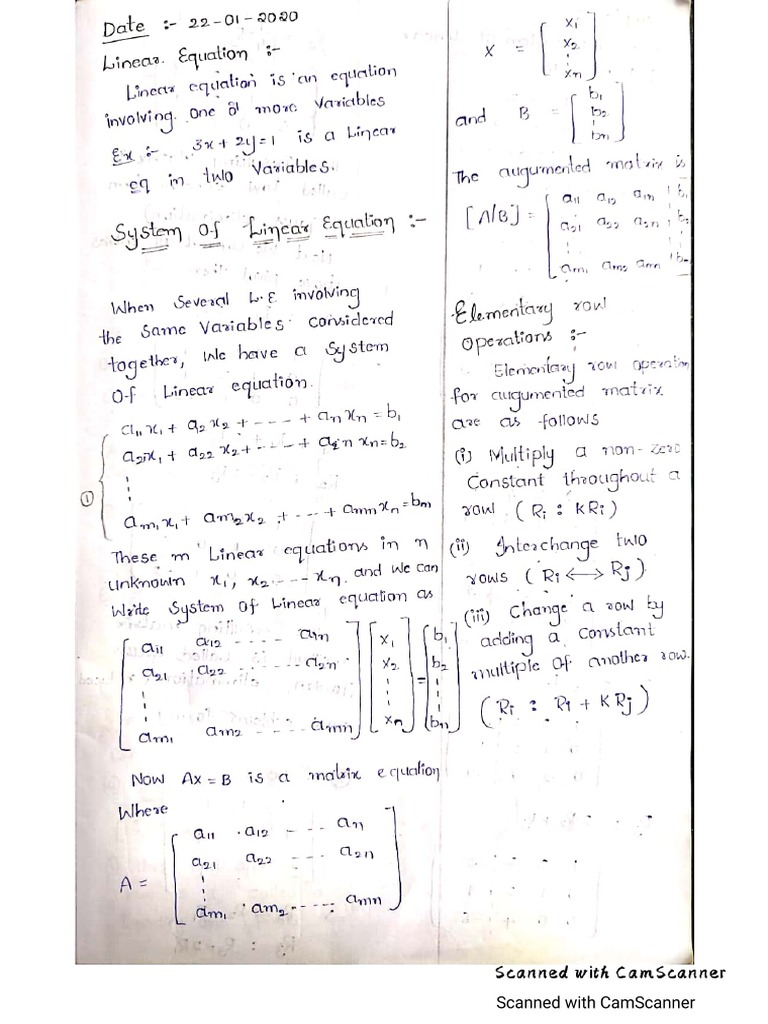 Date :- 22-01-2020
Linear. Equation :-
Linear equation is an equation
involving one or more Variables
Ex :- 3x + 2y = 1 is a Linear
eq in two Variables.
System Of Linear Equation :-
When Several L.E involving
the Same Variables Considered
together, We have a System
Of Linear equation.
a11 x1 + a2 x2 + ---- + an xn = b1
a21 x1 + a22 x2 + ---- + a2n xn = b2
⋮
① am1 x1 + am2 x2 + --- + amn xn = bm
These m Linear equations in n
unknown x1, x2 ---- xn. and We can
Write System Of Linear equation as
[ a11 a12 ---- a1n ] [ x1 ] [ b1 ]
[ a21 a22 ---- a2n ] [ x2 ] = [ b2 ]
[ ⋮ ] [ ⋮ ] [ ⋮ ]
[ am1 am2 ---- amn ] [ xn ] [ bn ]
Now AX = B is a matrix equation
Where
[ a11 a12 - - - a1 ]
[ a21 a22 - - - a2n ]
A = [ ⋮ ]
[ am1 am2 ------ amn ]
[ x1 ]
X = [ x2 ]
[ ⋮ ]
[ xn ]
[ b1 ]
and B = [ b2 ]
[ ⋮ ]
[ bn ]
The augumented matrix is
[ a11 a12 a1n ⋮ b1 ]
[A/B] = [ a21 a22 a2n ⋮ b2 ]
[ ⋮ ]
[ am1 am2 amn ⋮ bn ]
Elementary row
Operations :-
Elementary row operation
for augumented matrix
are as follows
(i) Multiply a non-zero
Constant throughout a
row (Ri : KRi)
(ii) Interchange two
rows (Ri ⟷ Rj)
(iii) Change a row by
adding a Constant
multiple of another row.
(Ri : Ri + KRj)
Scanned with CamScanner
Scanned with CamScanner